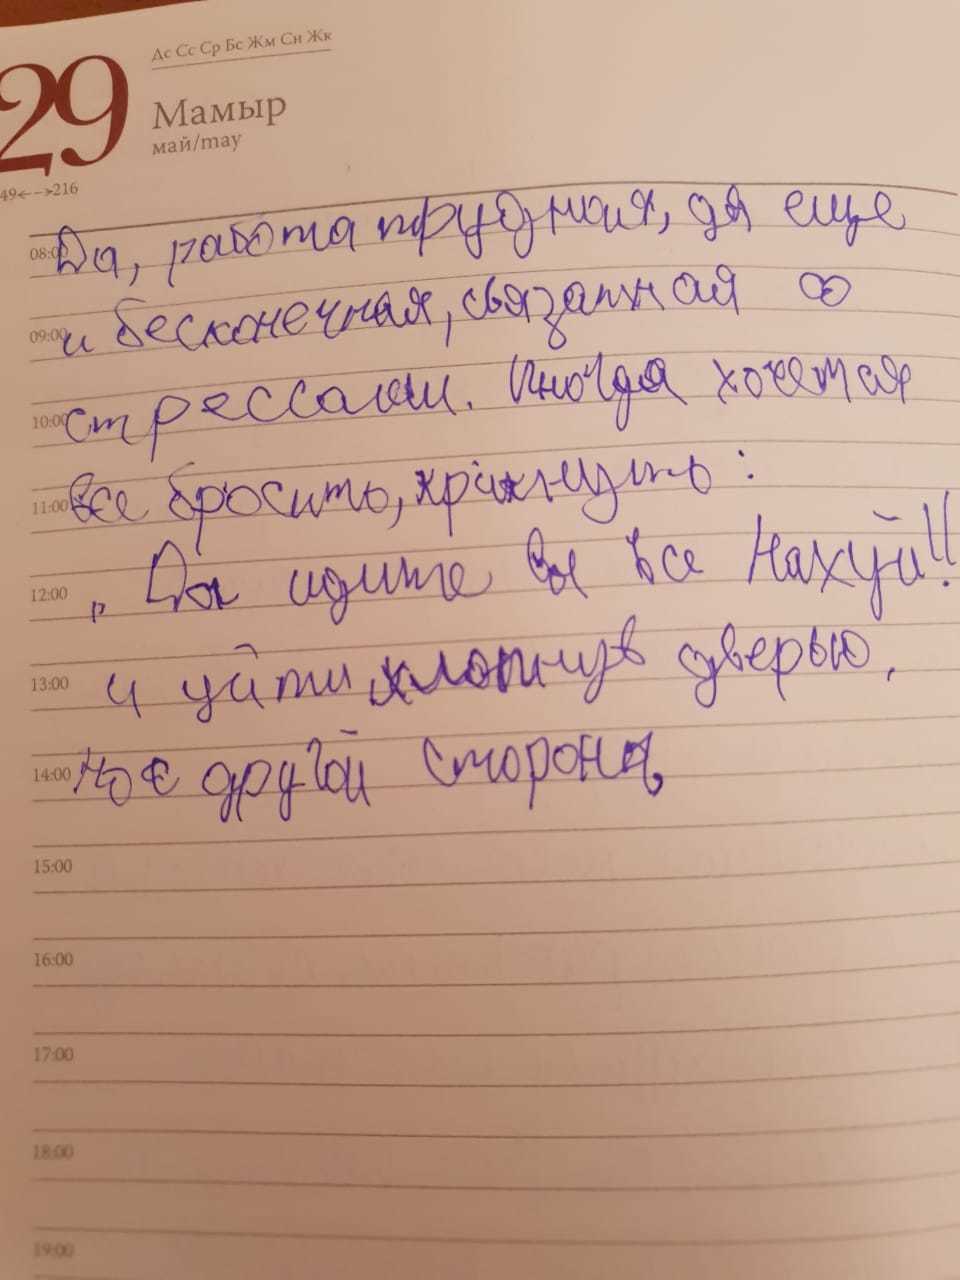 29
Дс Сс Ср Бс Жм Сн Жк
Мамыр
май/may
49←--→216
08:00 Да, работа трудная, да еще
09:00 и бесконечная, связанная со
10:00 стрессами. Иногда хочется
11:00 все бросить, крикнуть:
12:00 „Да идите вы все нахуй!!
13:00 и уйти хлопнув дверью,
14:00 но с другой стороны,
15:00
16:00
17:00
18:00
19:00